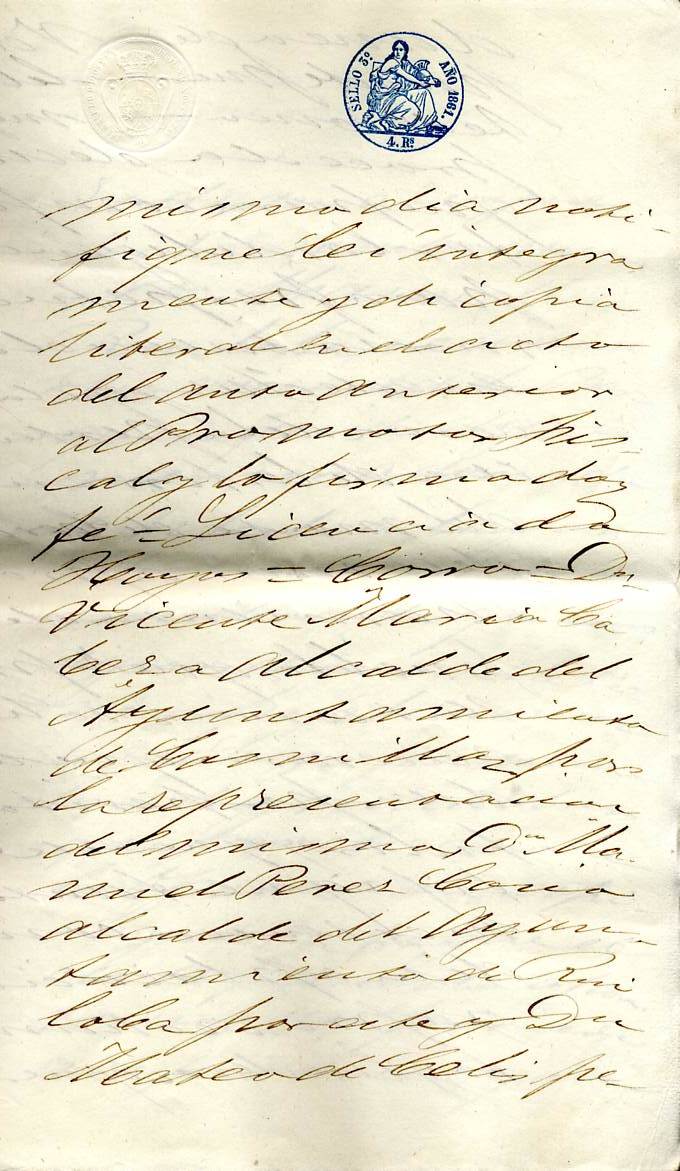 SELLO 3º AÑO 1861.
4. Rs
mismo dia noti-
fiqué leí integra
mente y di copia
literal en el acto
del auto anterior
al Promotor fis-
cal y lo firma doy
fe = Licenciado
Hoyos = Corro = Dn
Vicente Maria Ca
beza alcalde del
Ayuntamiento
de Comillas, por
la representacion
del mismo, Dn Ma-
nuel Perez Cosio
alcalde del Ayun-
tamiento de Rui
loba por este y Dn
Mateo de Celis pe-